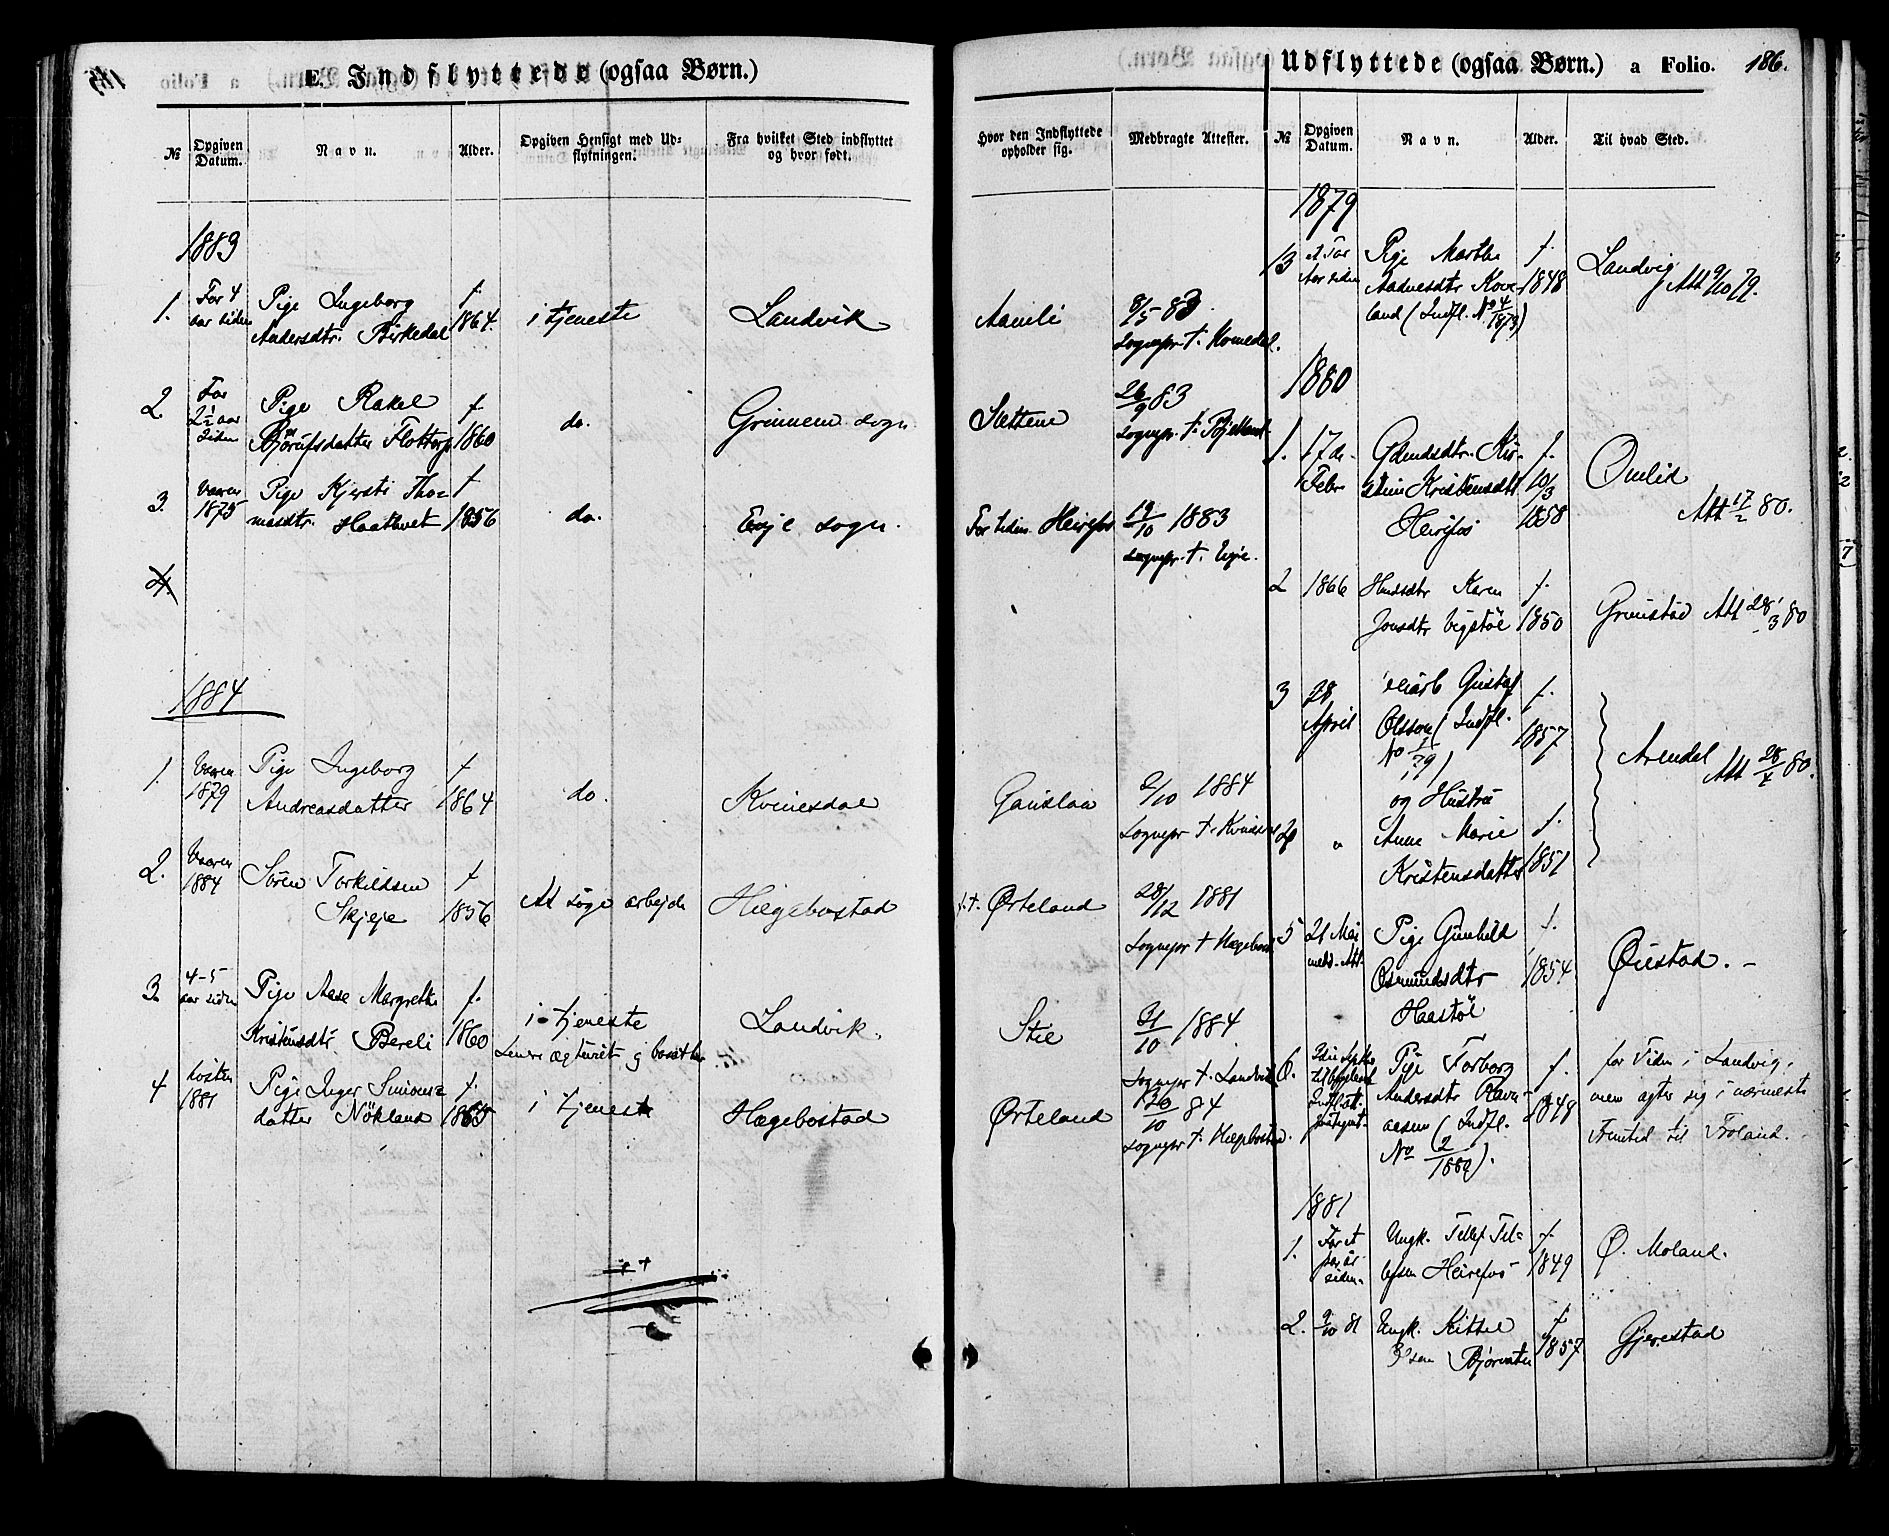 E. Indflyttede (ogsaa Børn.)
№
Opgiven Datum.
Navn.
Alder.
Opgiven Hensigt med Udflytningen.
Fra hvilket Sted indflyttet og hvor født.
1883
1. For 4 aar siden
Pige Ingeborg
Andersdtr. Birkedal
f. 1864.
i tjeneste
Landvik
2. For 2½ aar siden
Pige Rakel
datter Flottorp
f. 1860
do.
Grinnem sogn
3. Vaaren 1875
Pige Kjersti Tho=
masdtr. Haathvet
f 1856
do.
Evje sogn.
4.
1884
1. Vaaren 1879
Pige Ingeborg
Andreasdatter
f 1864
do.
Kvinesdal
2. Vaaren 1884
Søren Torkildsen
Skjeje
f 1856
At søge arbejde
Hægebostad
3. 4-5 aar siden
Pige Aase Margrethe
Kristensdtr Bereli
f. 1860
i tjeneste
Landvik.
4 høsten 1881
Pige Inger Simons=
datter Nökland
f. 1865
i tjeneste
Hægebostad
Udflyttede (ogsaa Børn.) a Folio. 186.
Hvor den Indflyttede opholder sig.
Medbragte Attester.
№
Opgiven Datum.
Navn.
Alder.
Til hvad Sted.
Aamli
8/5 83
sognepr. t. Homedal.
Sættene
26/9 83
sognepr. t. Bjelland
For tiden Heirefos
19/10 1883
sognepr t. Evje.
Gauslaa
2/10 1884
Sognepr t. Kvinesd
f.t. Ørteland
28/12 1881
Sognepr t Hægebost
Stie
31/10 1884
Sognepr t. Landvik
Ørteland
/10 84
sognepr t. Hægebostad.
1879
13 et Par Aar siden
Pige Marthe
Aadnesdtr
land (Indfl. No 4/1873)
f. 1848
Landvig Att 9/10 79.
1880
1. 17de Febr
Gdmdsdtr. Kir-
stine Kristensdtr
Heirefos
f. 10/3 1858
Omlid
Att 17/2 80.
2 1866
Husdtr Karen
Jonsdtr Vigstøl
f. 1850
Grimstad Att 28/3 80
3 28 April
Gustaf
Olsson (Indfl.
No 1/79)
og Hustru
f. 1857
Arendal Att 28/4 80.
4 "
Anne Marie
Kristensdatter
f. 1851
5 21 Mai meld. Att.
Pige Gunhild
Osmundsdtr
Haastøl
f. 1854
Øiestad. -
6.
Pige Torborg
Andersdtr Ravn-
aasen (Indfl.
No 2/1880).
f. 1848
for Tiden i Landvig,
men agter sig i nærmeste
Fremtid til Froland.
1881
1. For et par år siden
Ungk. Tellef Tel=
lefsen Heirefos
f. 1849
Ø. Moland.
2. 9/10 81
Ungk. Kittel
sen Bjorvatn
f 1857
Gjerestad